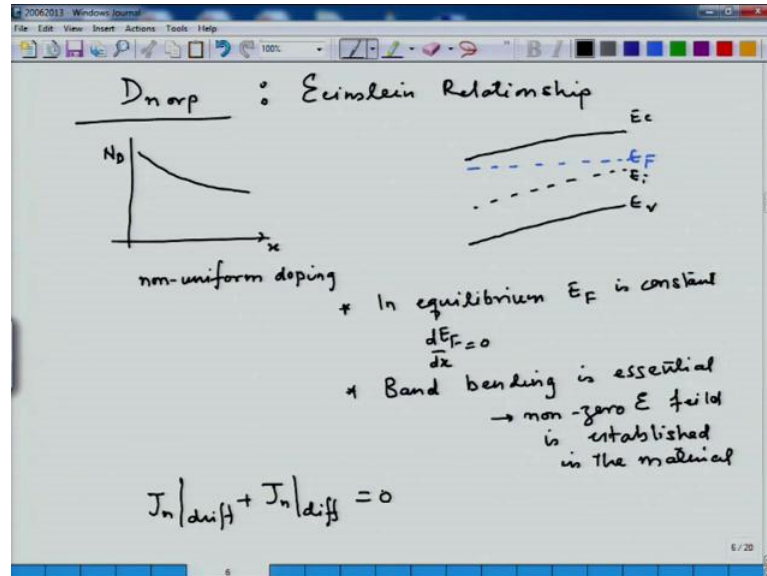 20062013 - Windows Journal
File Edit View Insert Actions Tools Help
100%
B I
Dn or p : Ecinslein Relationship
ND
x
non-uniform doping
Ec
EF
Ei
Ev
* In equilibrium EF is constant
dEF/dx = 0
* Band bending is essential
→ non-zero E feild
is established
in the material
Jn|drift + Jn|diff = 0
6 / 20
6